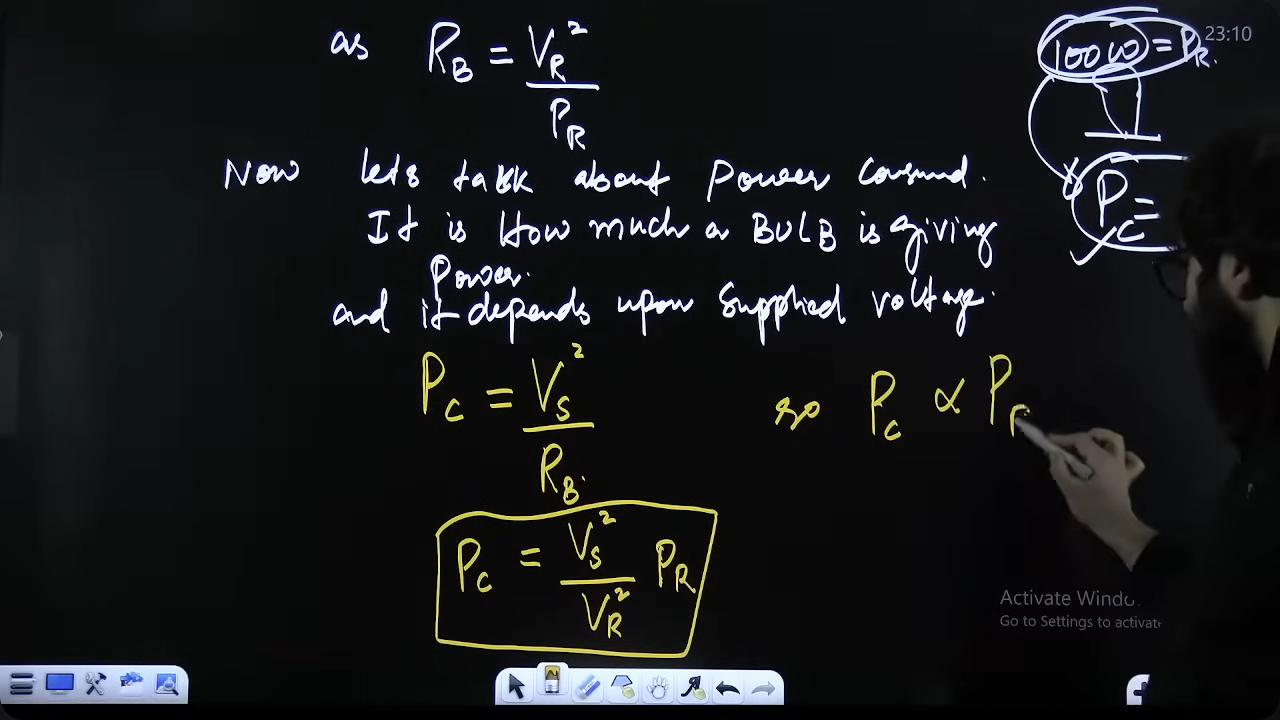 as R_B = V_R² / P_R
23:10
100W = P_R.
Now lets talk about power consumd.
P_C =
It is How much a BULB is giving
Power.
and it depends upon supplied voltage.
P_C = V_S² / R_B.
so P_C ∝ P_R
P_C = V_S² / V_R² P_R
Activate Windo
Go to Settings to activate